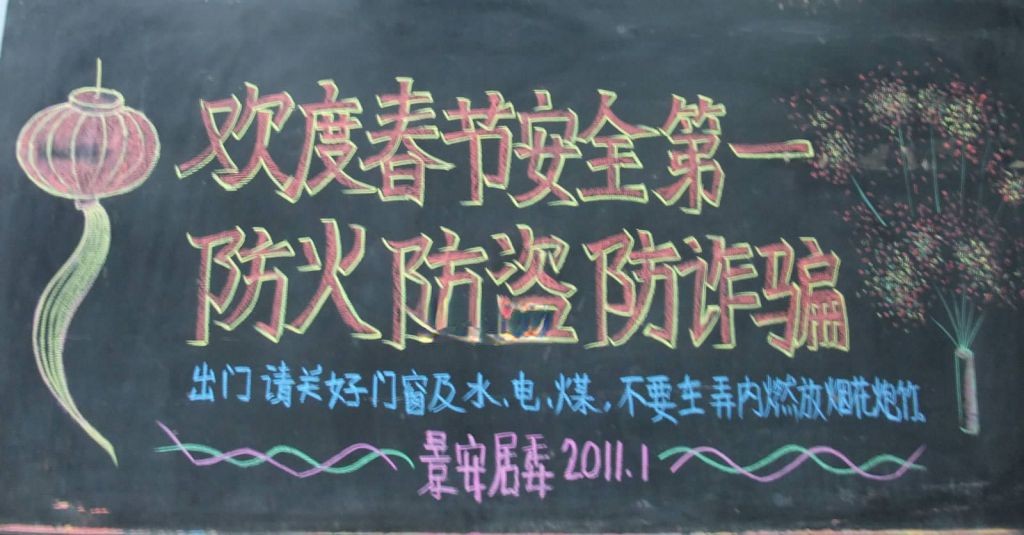 欢度春节安全第一
防火防盗防诈骗
出门请关好门窗及水、电、煤，不要在弄内燃放烟花炮竹
景安居委 2011.1